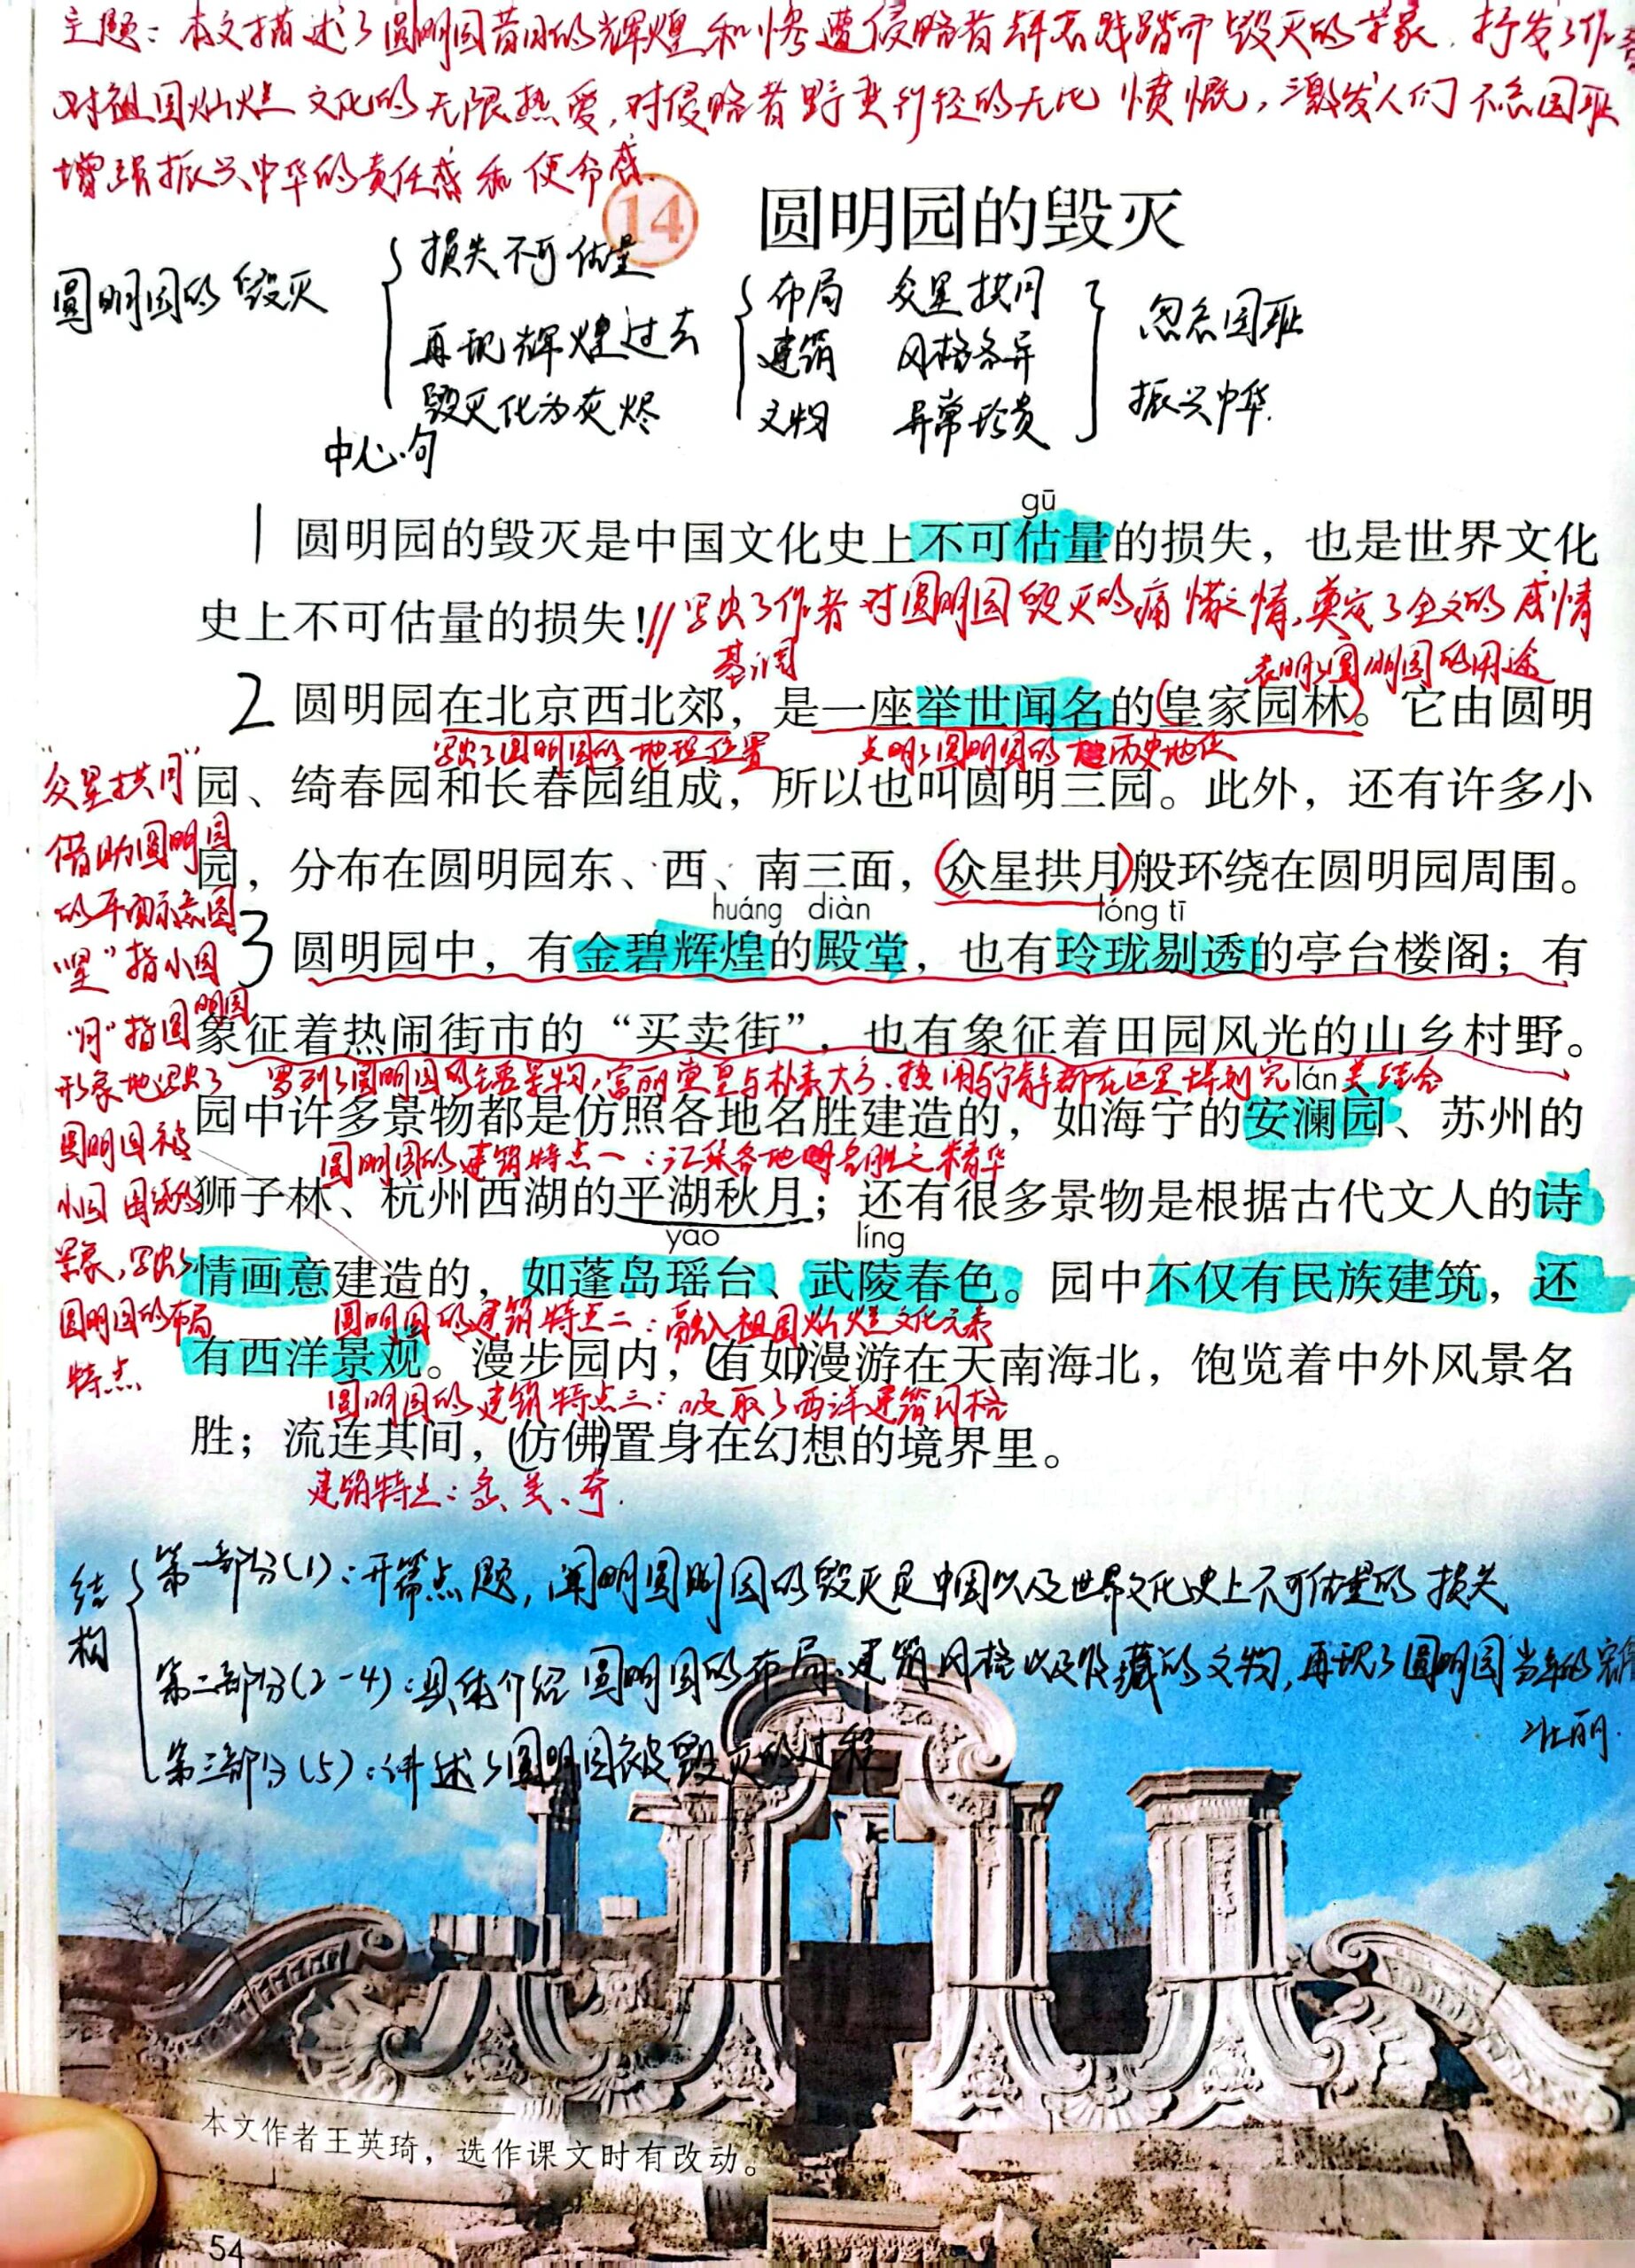 主题：本文描述了圆明园昔日的辉煌和惨遭侵略者肆意践踏而毁灭的景象，抒发了作者
对祖国灿烂文化的无限热爱，对侵略者野蛮行径的无比愤慨，激发人们不忘国耻
增强振兴中华的责任感和使命感.
14 圆明园的毁灭
圆明园的毁灭
损失不可估量
再现辉煌过去
毁灭化为灰烬
布局 众星拱月
建筑 风格各异
文物 异常珍贵
忽忘国耻
振兴中华.
中心句
gū
1 圆明园的毁灭是中国文化史上不可估量的损失，也是世界文化
史上不可估量的损失！// 写出了作者对圆明园毁灭的痛惜之情，奠定了全文的感情
基调
表明了圆明园的用途
2 圆明园在北京西北郊，是一座举世闻名的(皇家园林)。它由圆明
写出了圆明园的地理位置 点明了圆明园的历史地位
园、绮春园和长春园组成，所以也叫圆明三园。此外，还有许多小
园，分布在圆明园东、西、南三面，(众星拱月)般环绕在圆明园周围。
huáng diàn lóng tī
3 圆明园中，有金碧辉煌的殿堂，也有玲珑剔透的亭台楼阁；有
象征着热闹街市的“买卖街”，也有象征着田园风光的山乡村野。
罗列了圆明园的各景物，富丽堂皇与朴素大方、热闹与宁静都在这里得到完美结合
lán
园中许多景物都是仿照各地名胜建造的，如海宁的安澜园、苏州的
圆明园的建筑特点一：汇集各地名胜之精华
狮子林、杭州西湖的平湖秋月；还有很多景物是根据古代文人的诗
yáo líng
情画意建造的，如蓬岛瑶台、武陵春色。园中不仅有民族建筑，还
圆明园的建筑特点二：融入祖国灿烂文化元素
有西洋景观。漫步园内，(有如)漫游在天南海北，饱览着中外风景名
圆明园的建筑特点三：吸取了西洋建筑风格
胜；流连其间，(仿佛)置身在幻想的境界里。
建筑特点：多、美、奇.
“众星拱月”
借助圆明园
的平面示意图
“星”指小园
“月”指圆明园
形象地写出了
圆明园被
小园围绕的
景象，写出了
圆明园的布局
特点
结构
第一部分(1)：开篇点题，阐明圆明园的毁灭是中国以及世界文化史上不可估量的损失
第二部分(2-4)：具体介绍圆明园的布局、建筑风格以及收藏的文物，再现了圆明园当年的宏伟
壮丽.
第三部分(5)：讲述了圆明园被毁灭的过程
本文作者王英琦，选作课文时有改动。
54